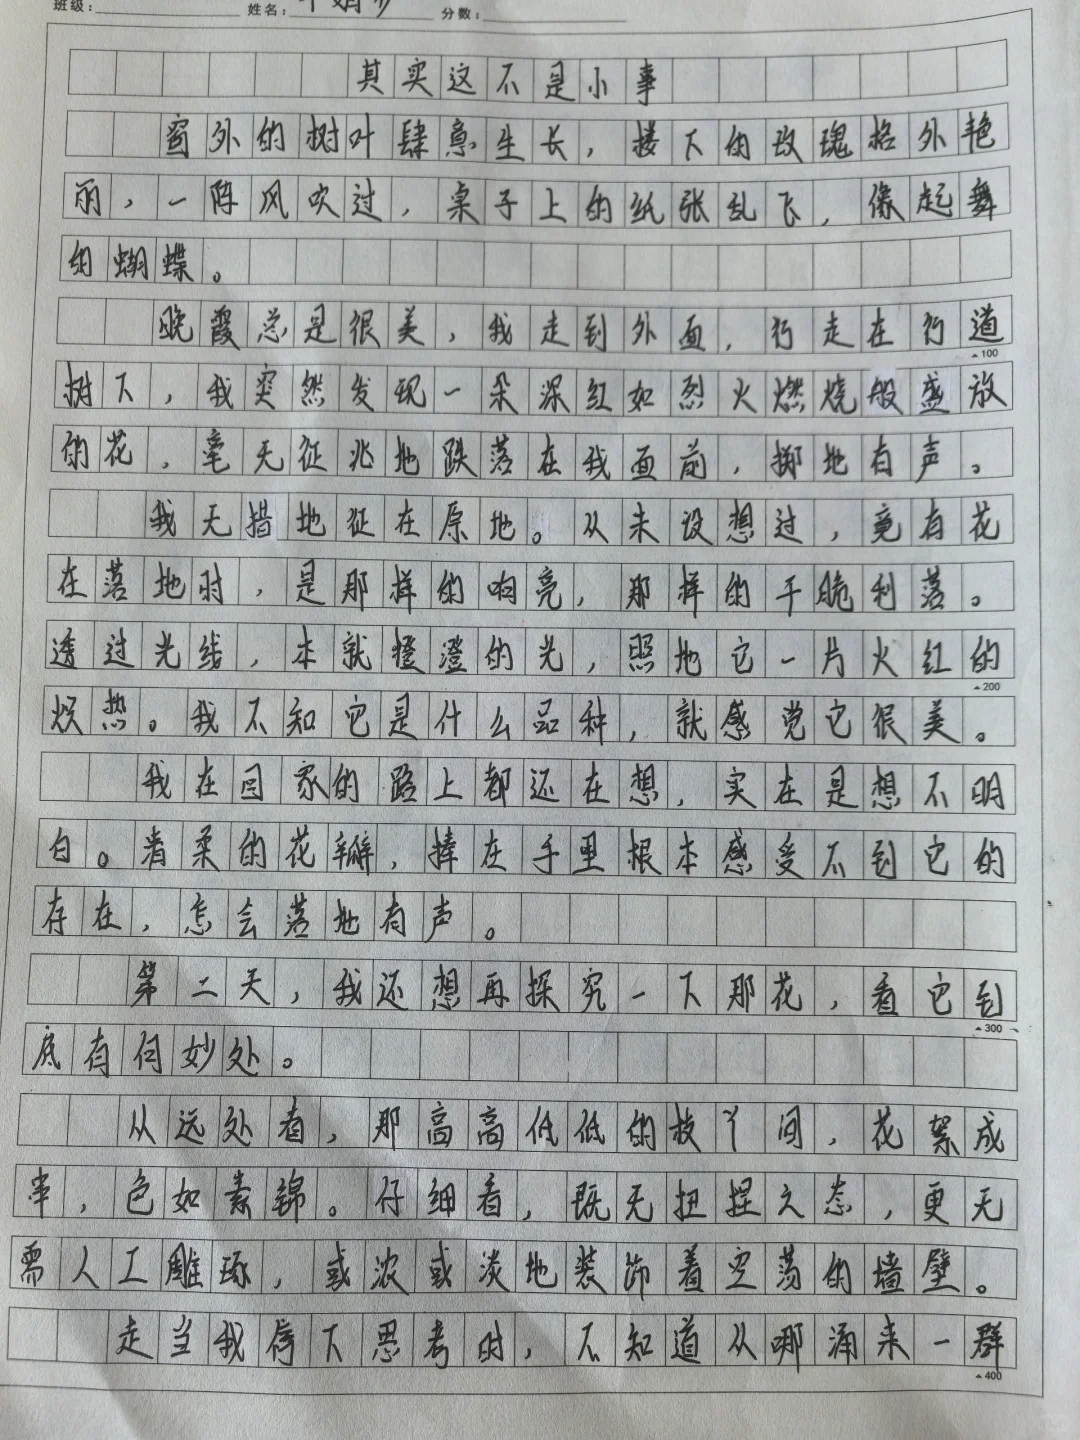 班级: 姓名: 分数:
其实这不是小事
窗外的树叶肆意生长，楼下的玫瑰格外艳
丽，一阵风吹过，桌子上的纸张乱飞，像起舞
的蝴蝶。
晚霞总是很美，我走到外面，行走在行道
▲100
树下，我突然发现一朵深红如烈火燃烧般盛放
的花，毫无征兆地跌落在我面前，掷地有声。
我无措地征在原地。从未设想过，竟有花
在落地时，是那样的响亮，那样的干脆利落。
透过光线，本就橙澄的光，照地它一片火红的
▲200
炽热。我不知它是什么品种，就感觉它很美。
我在回家的路上都还在想，实在是想不明
白。看柔的花瓣，捧在手里根本感受不到它的
存在，怎会落地有声。
第二天，我还想再探究一下那花，看它到
▲300
底有何妙处。
从远处看，那高高低低的枝丫间，花絮成
串，色如素锦。仔细看，既无扭捏之态，更无
需人工雕琢，或浓或淡地装饰着空荡的墙壁。
走当我停下思考时，不知道从哪涌来一群
▲400